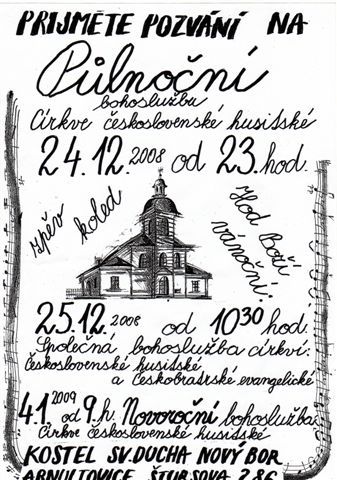 PŘIJMĚTE POZVÁNÍ NA
Půlnoční
bohoslužba
Církve československé husitské
24.12.2008 od 23.hod.
zpěv koled
Hod Boží vánoční:
25.12.2008 od 10³⁰ hod.
Společná bohoslužba církví:
Československé husitské
a Českobratrské evangelické
4.1.2009 od 9.h. Novoroční bohoslužba
Církve československé husitské
KOSTEL SV.DUCHA NOVÝ BOR
ARNULTOVICE ŠTURSOVA 286